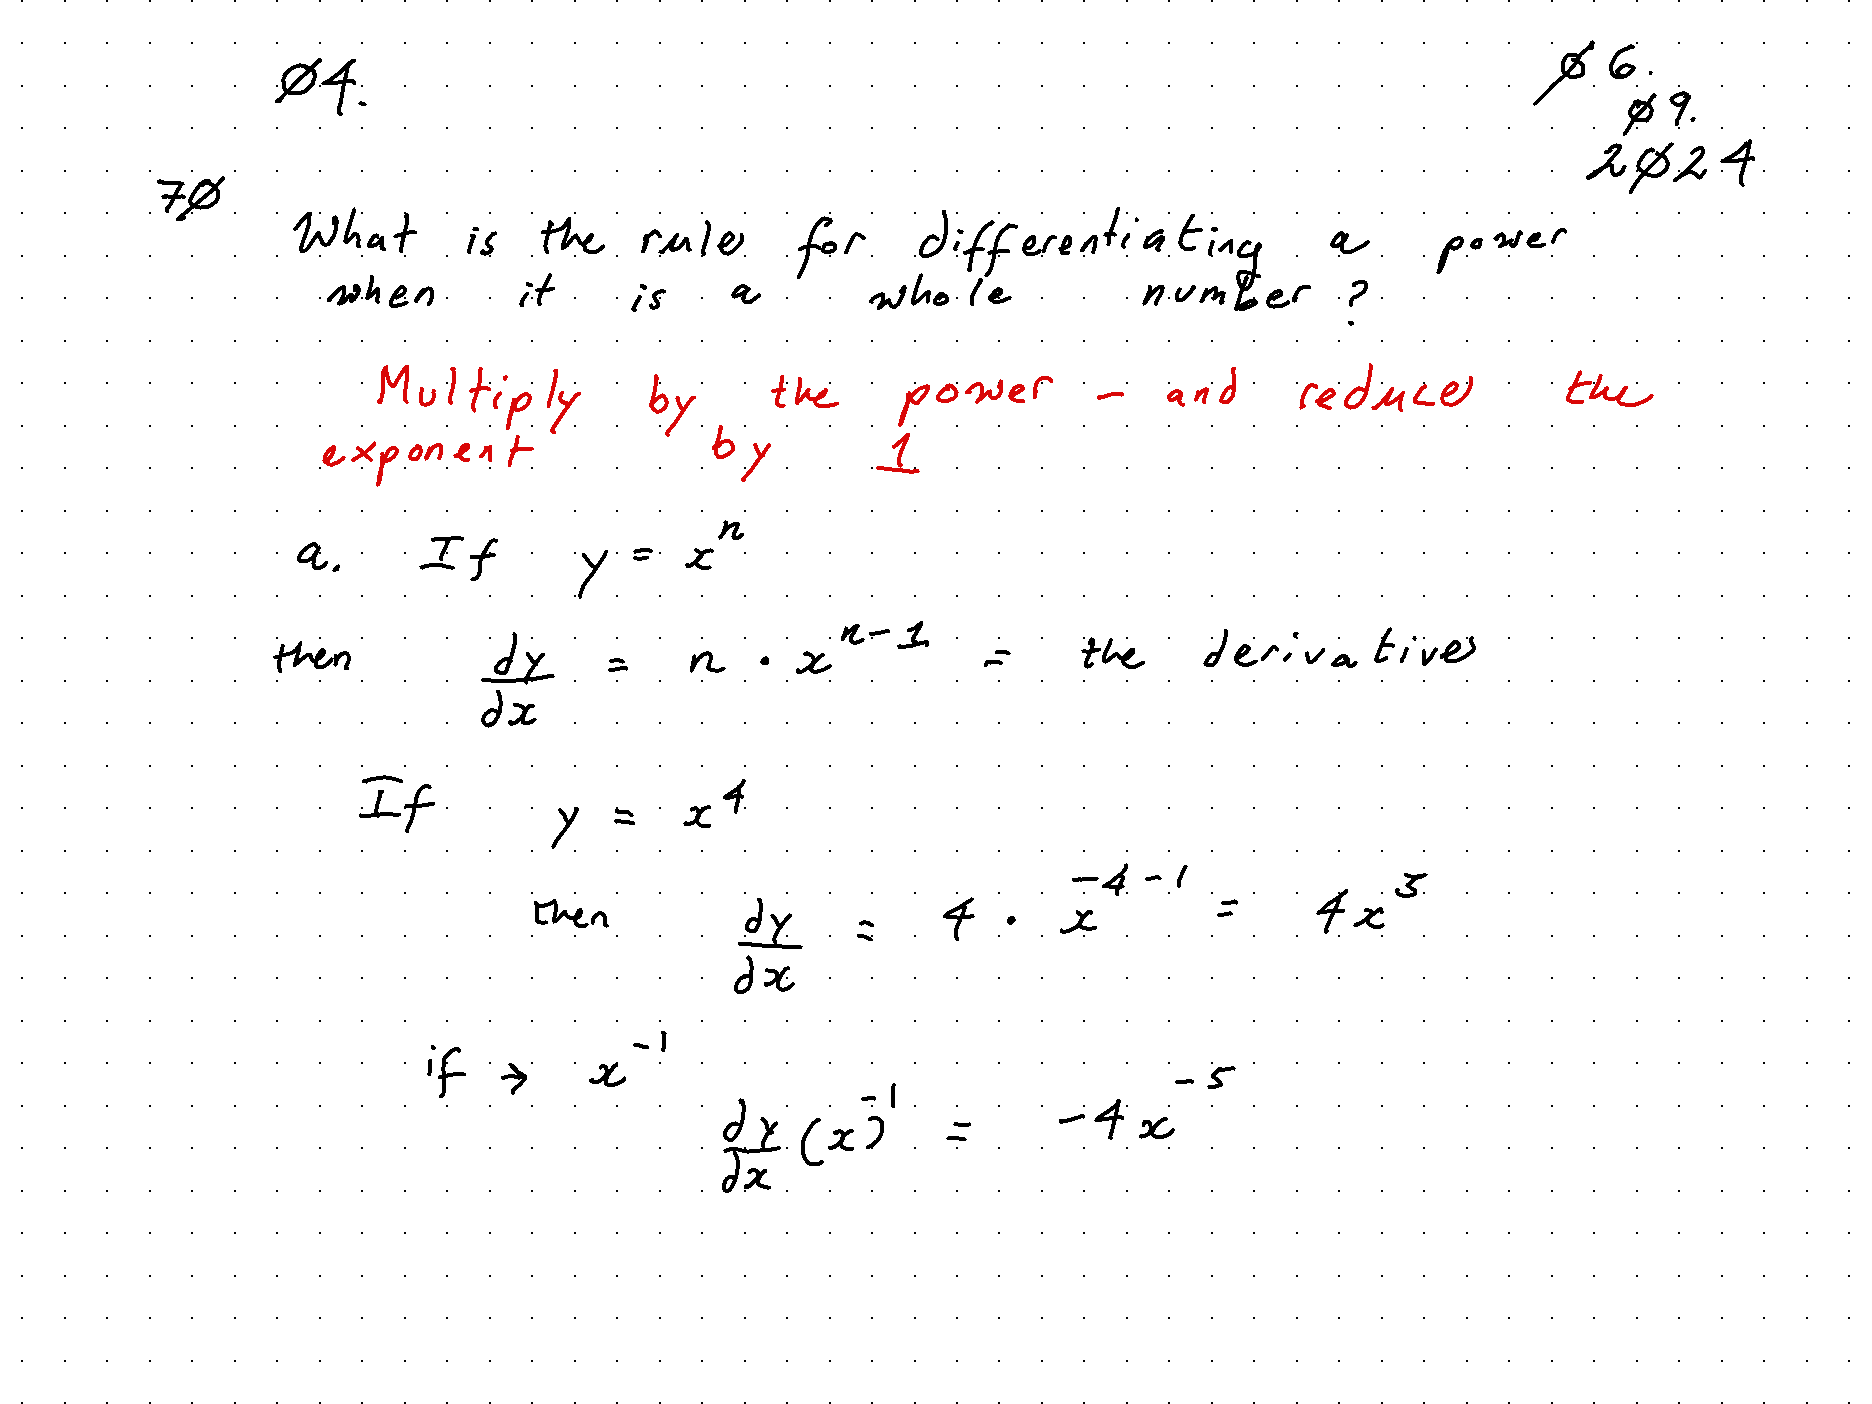 Ø4.
Ø6.
Ø9.
2Ø24
7Ø
What is the rule for differentiating a power
when it is a whole number?
Multiply by the power - and reduce the
exponent by 1
a. If y = x^n
then dy/dx = n · x^{n-1} = the derivative
If y = x^4
then dy/dx = 4 · x^{-4-1} = 4x^3
if → x^{-1}
dy/dx (x)^{-1} = -4x^{-5}